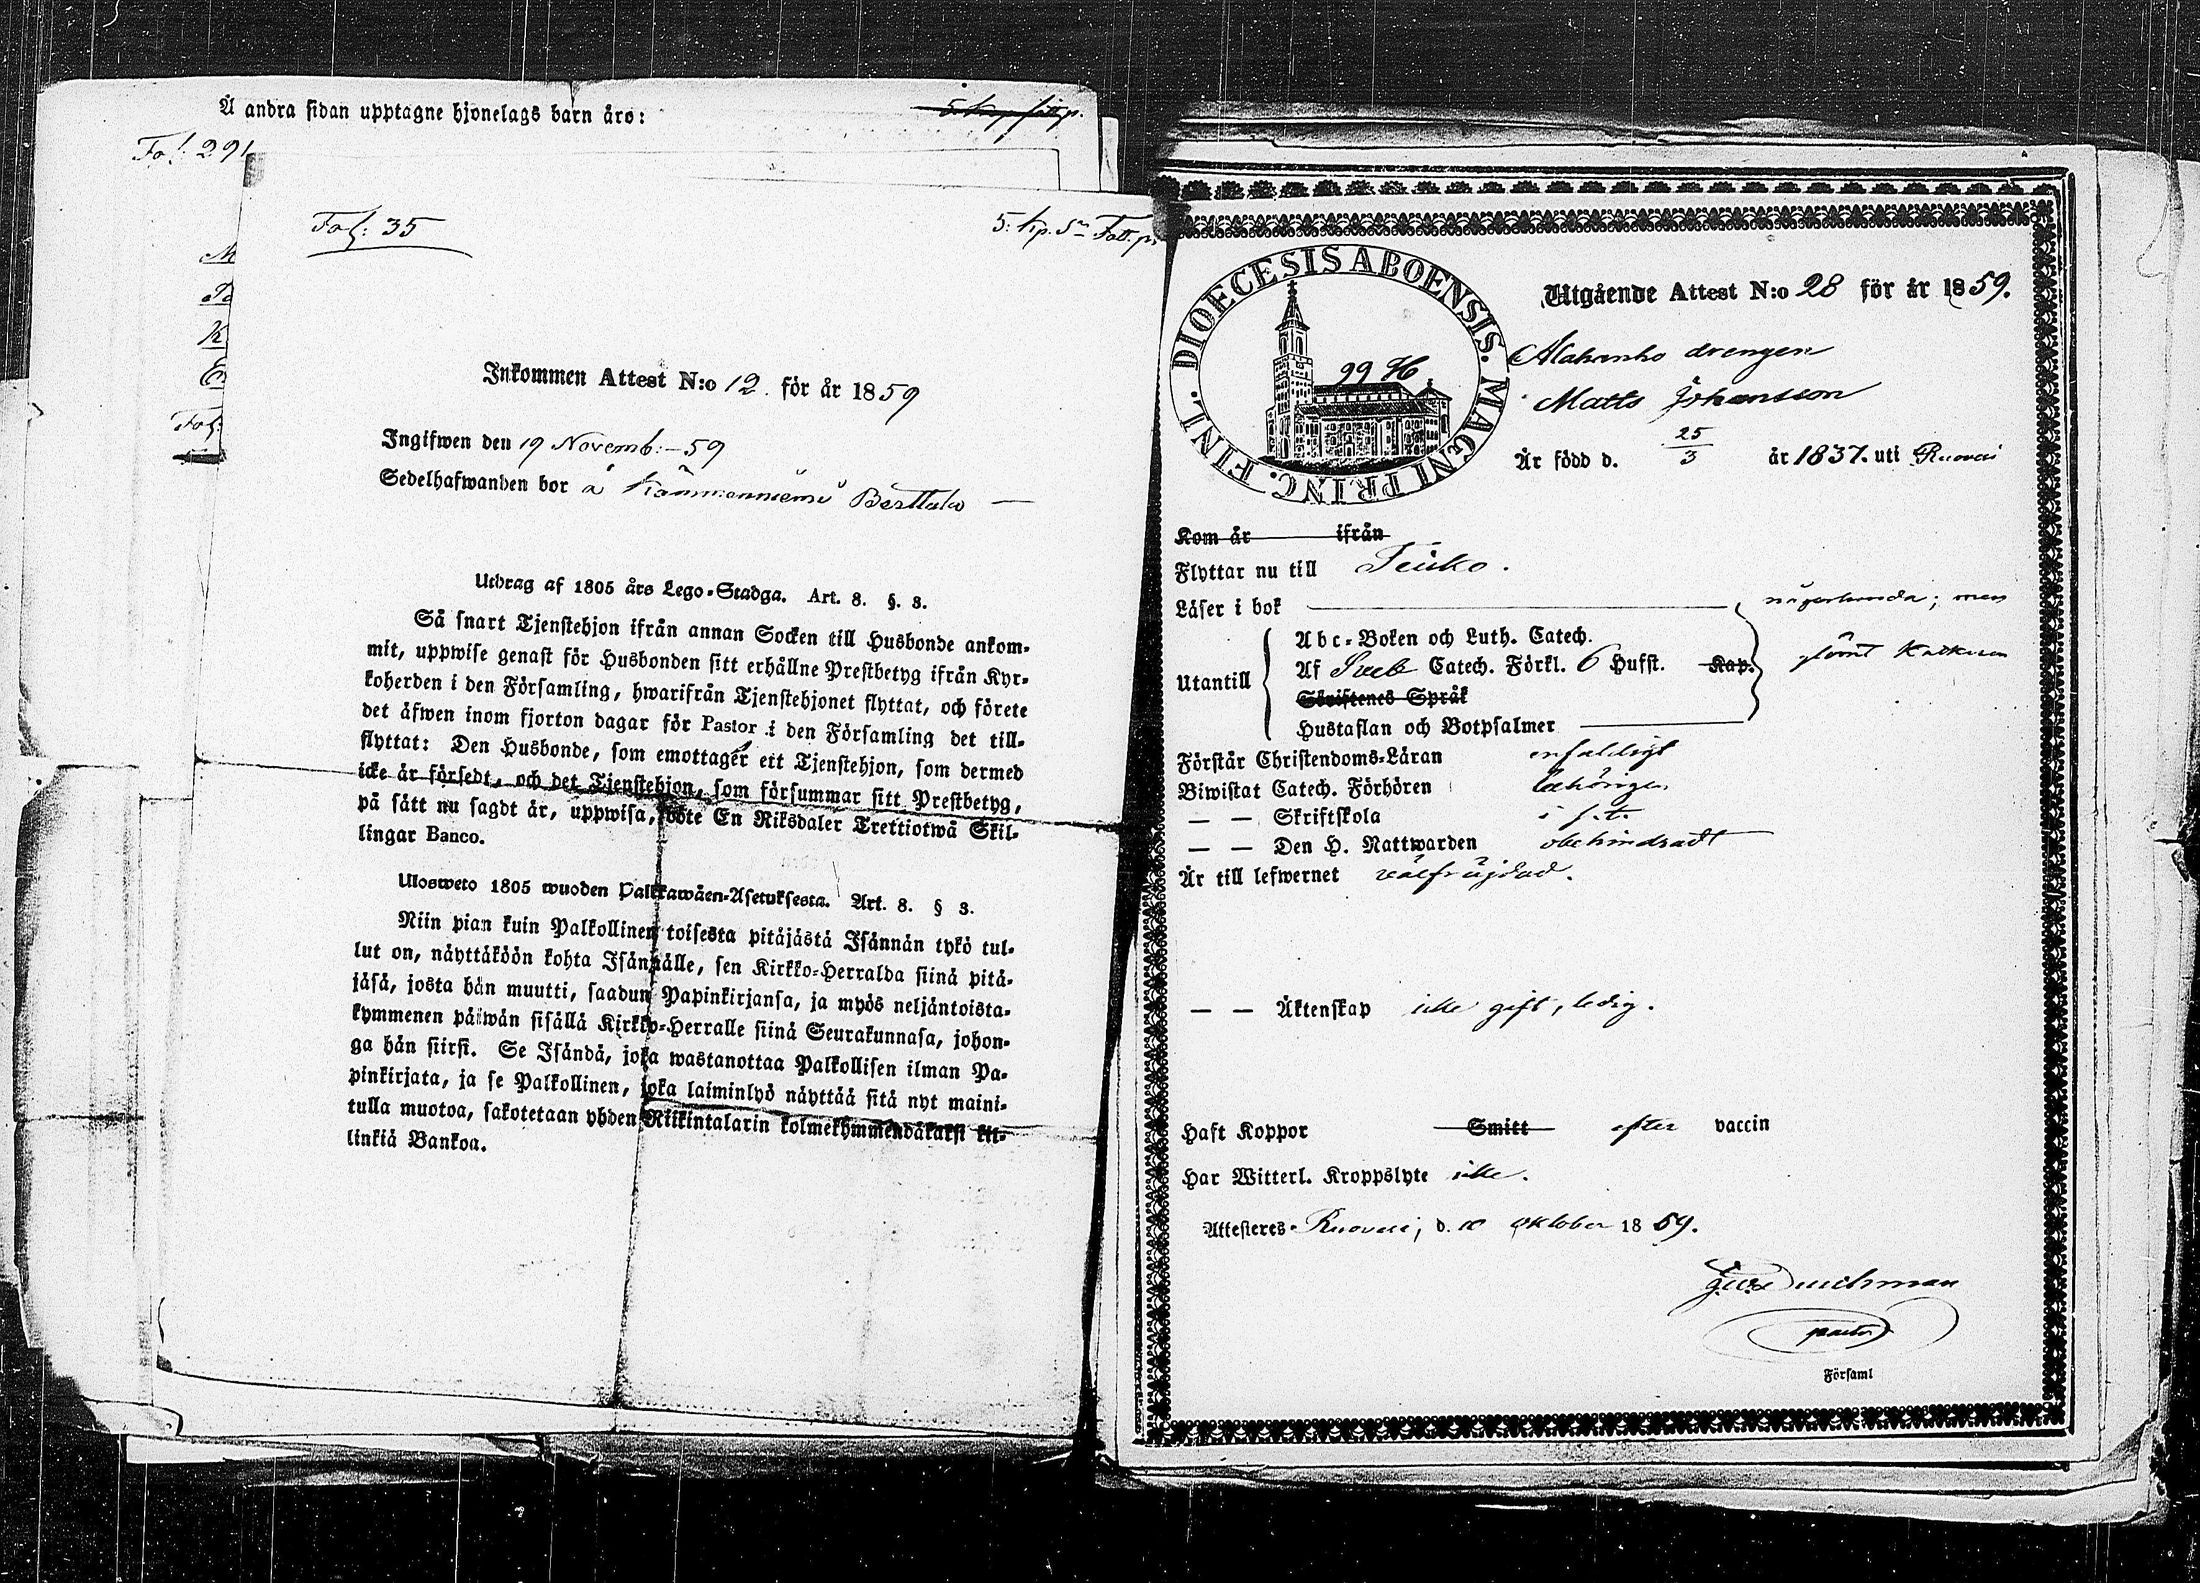 Å andra sidan upptagne hjonelags barn äro:
Fol: 291
Fol: 35
5: kp. Sn Fatt. p.
M
K
Fol:
Inkommen Attest N:o 12. för år 1859
Ingifwen den 19 Novemb: -59
Sedelhafwanden bor å Kämmenniemi Berttala
Utdrag af 1805 års Lego-Stadga. Art. 8. §. 3.
Så snart Tjenstehjon ifrån annan Socken till Husbonde ankom-
mit, uppwise genast för Husbonden sitt erhållne Prestbetyg ifrån Kyr-
koherden i den Församling, hwarifrån Tjenstehjonet flyttat, och förete
det äfwen inom fjorton dagar för Pastor i den Församling det till-
flyttat: Den Husbonde, som emottager ett Tjenstehjon, som dermed
icke är försedt, och det Tjenstehjon, som försummar sitt Prestbetyg,
på sätt nu sagdt är, uppwisa, böte En Riksdaler Trettiotwå Skil-
lingar Banco.
Ulosweto 1805 wuoden Palkkawäen-Asetuksesta. Art. 8. § 3.
Niin pian kuin Palkollinen toisesta pitäjästä Isännän tykö tul-
lut on, näyttäköön kohta Isännälle, sen Kirkko-Herralda siinä pitä-
jäsä, josta hän muutti, saadun Papinkirjansa, ja myös neljäntoista-
kymmenen päiwän sisällä Kirkko-Herralle siinä Seurakunnasa, johon-
ga hän siirsi. Se Isändä, joka wastanottaa Palkollisen ilman Pa-
pinkirjata, ja se Palkollinen, joka laiminlyö näyttää sitä nyt maini-
tulla muotoa, sakotetaan yhden Riikintalarin kolmekymmendäkaksi kil-
linkiä Bankoa.
DIOECESIS ABOENSIS. MAGNI PRINC. FINL.
99 H
Utgående Attest N:o 28 för år 1859.
Alahanho drengen
Matts Johansson
Är född d. 25/3 år 1837. uti Ruovesi
Kom år ifrån
Flyttar nu till Teisko.
Läser i bok någorlunda; men
Utantill
Abc-Boken och Luth. Catech.
Af Sveb Catech. Förkl. 6 Hufst. Kap. glömt Katkesen
Skriftenes Språk
Hustaflan och Botpsalmer
Förstår Christendoms-Läran enfaldigt
Biwistat Catech. Förhören behörigen
— — Skriftskola i s. t.
— — Den H. Nattwarden obehindradt
Är till lefwernet välfräjdad.
— — Äktenskap icke gift, ledig.
Haft Koppor Smitt efter vaccin
Har Witterl. Kroppslyte icke.
Attesteres Ruovesi, d. 10 Oktober 1859.
pastor
Församl